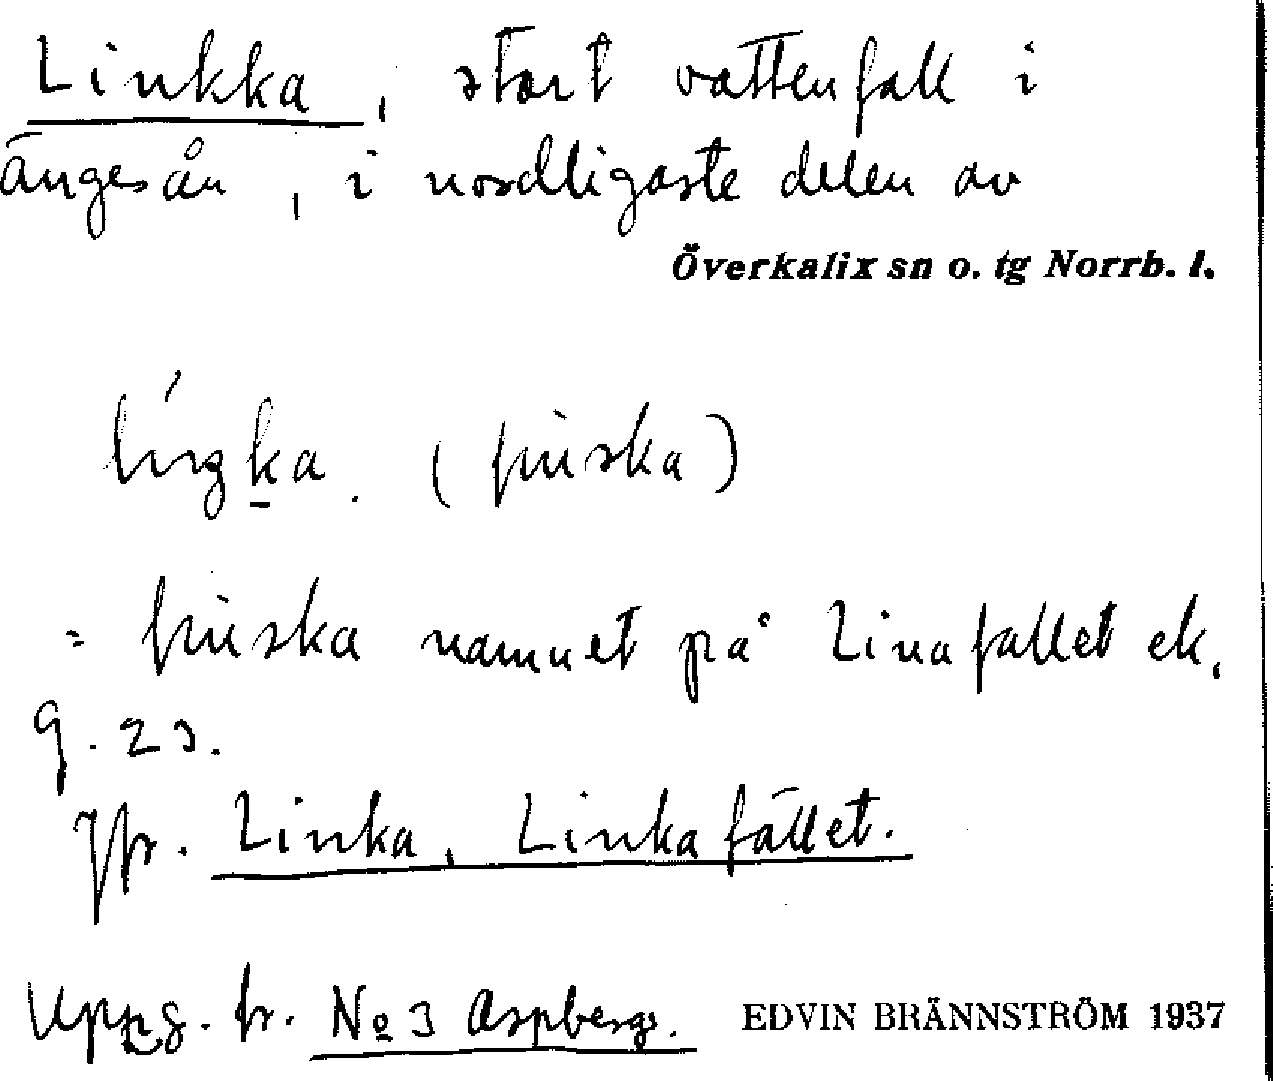 Linkka, stort vattenfall i
ängesån, i nordligaste delen av
Överkalix sn o. tg Norrb. l.
líŋka. (finska)
= finska namnet på Linafallet ek.
9. 23.
Jfr. Linka, Linkafallet.
Uppg. fr. No 3 Aspberg. EDVIN BRÄNNSTRÖM 1937